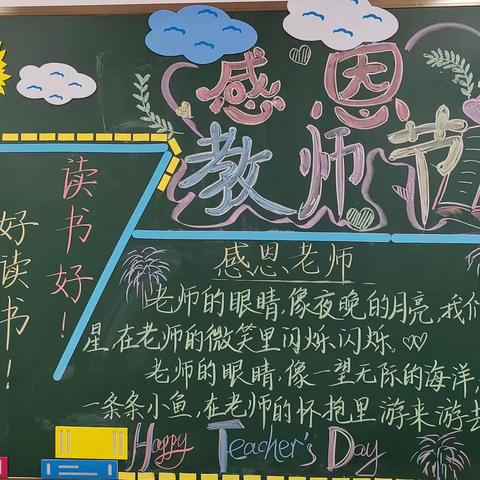 感恩
教师节
读书好！
好读书！
感恩老师
老师的眼睛,像夜晚的月亮,我们
星,在老师的微笑里闪烁、闪烁。
老师的眼睛,像一望无际的海洋,
一条条小鱼,在老师的怀抱里游来游去
Happy Teacher's Day